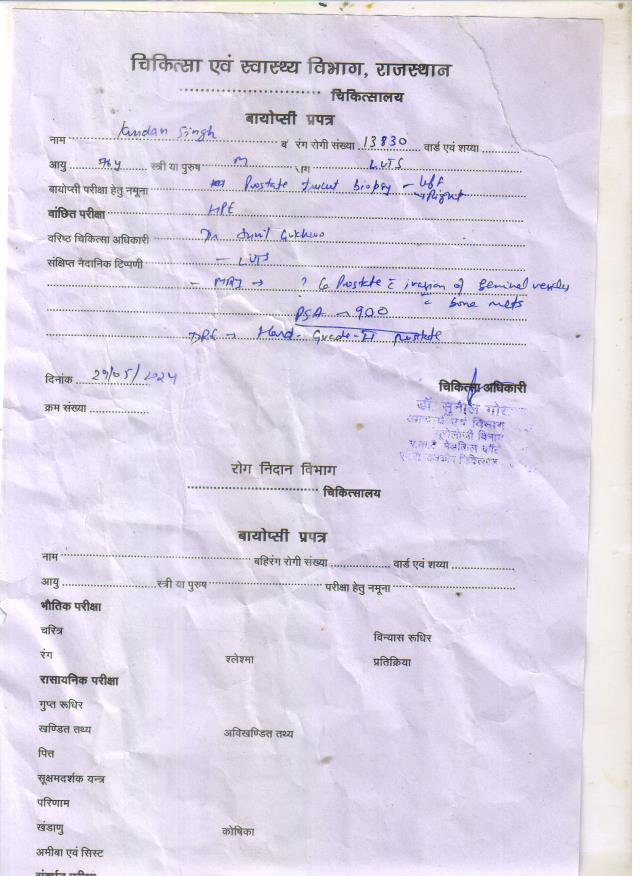 चिकित्सा एवं स्वास्थ्य विभाग, राजस्थान
............................ चिकित्सालय
बायोप्सी प्रपत्र
नाम Kundan Singh ब रंग रोगी संख्या 13830 वार्ड एवं शय्या
आयु स्त्री या पुरुष M LUTS
बायोप्सी परीक्षा हेतु नमूना Prostate trucut biopsy - Left
→ Right
वांछित परीक्षा HPE
वरिष्ठ चिकित्सा अधिकारी Dr Sunil
संक्षिप्त नेदानिक टिप्पणी - LUTS
- MRI → ? Ca Prostate c̄ invasion of Seminal vesicles
c̄ bone mets
PSA → 900
DRE → Hard- Grade-II prostate
दिनांक 29/05/2024 चिकित्सा अधिकारी
क्रम संख्या
डॉ. सुनील
रोग निदान विभाग
............................ चिकित्सालय
बायोप्सी प्रपत्र
नाम बहिरंग रोगी संख्या वार्ड एवं शय्या
आयु स्त्री या पुरुष परीक्षा हेतु नमूना
भौतिक परीक्षा
चरित्र विन्यास रूधिर
रंग श्लेश्मा प्रतिक्रिया
रासायनिक परीक्षा
गुप्त रूधिर
खण्डित तथ्य अविखण्डित तथ्य
पित्त
सूक्षमदर्शक यन्त्र
परिणाम
खंडाणु कोषिका
अमीबा एवं सिस्ट